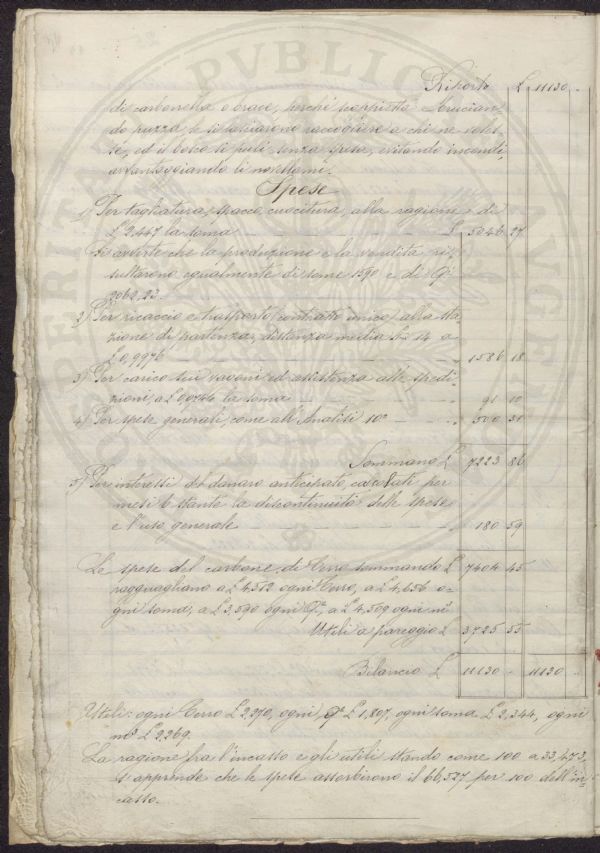 Riporto £ 11130 "
di carbonella o brace, perché scoppietta brucian-
do puzza, e si lasciarono raccogliere a chi ne voles-
se, ed il bosco si pulì senza spesa, evitando incendi,
avvantaggiando li novellami.
Spese
1) Per tagliatura, spacco, cuocitura, alla ragione di
£ 2.447 la soma £ 5046 27
Si avverte che la produzione e la vendita ri-
sultarono egualmente di some 1590 e di Q.li
2062.23.
2) Per ricaccio o trasporto, contratto unico, alla sta-
zione di partenza, distanza media 14 a
£ 0,9976 " 1586 18
3) Per carico sui vagoni ed assistenza alle spedi-
zioni, a £ 0,0746 la soma " 91 10
4) Per spese generali, come all'Analisi 10a " 500 31
Sommano £ 7223 86
5) Per interessi del danaro anticipato, calcolati per
mesi 6 stante la discontinuità delle spese
e l'uso generale " 180 59
Le spese del carbone di Cerro sommando £ 7404 45
ragguagliano a £ 4,512 ogni Cerro, a £ 4,656 o-
gni soma, a £ 3,590 ogni Q.le, a £ 4,509 ogni m.c
Utili a pareggio £ 3725 55
Bilancio £ 11130 " 11130 "
Utili: ogni Cerro £ 2,270, ogni Q.le £ 1,807, ogni soma £ 2,344, ogni
m.c £ 2,269.
La ragione fra l'incasso e gli utili stando come 100 a 33,473,
s'apprende che le spese assorbirono il 66,527 per 100 dell'in-
casso.